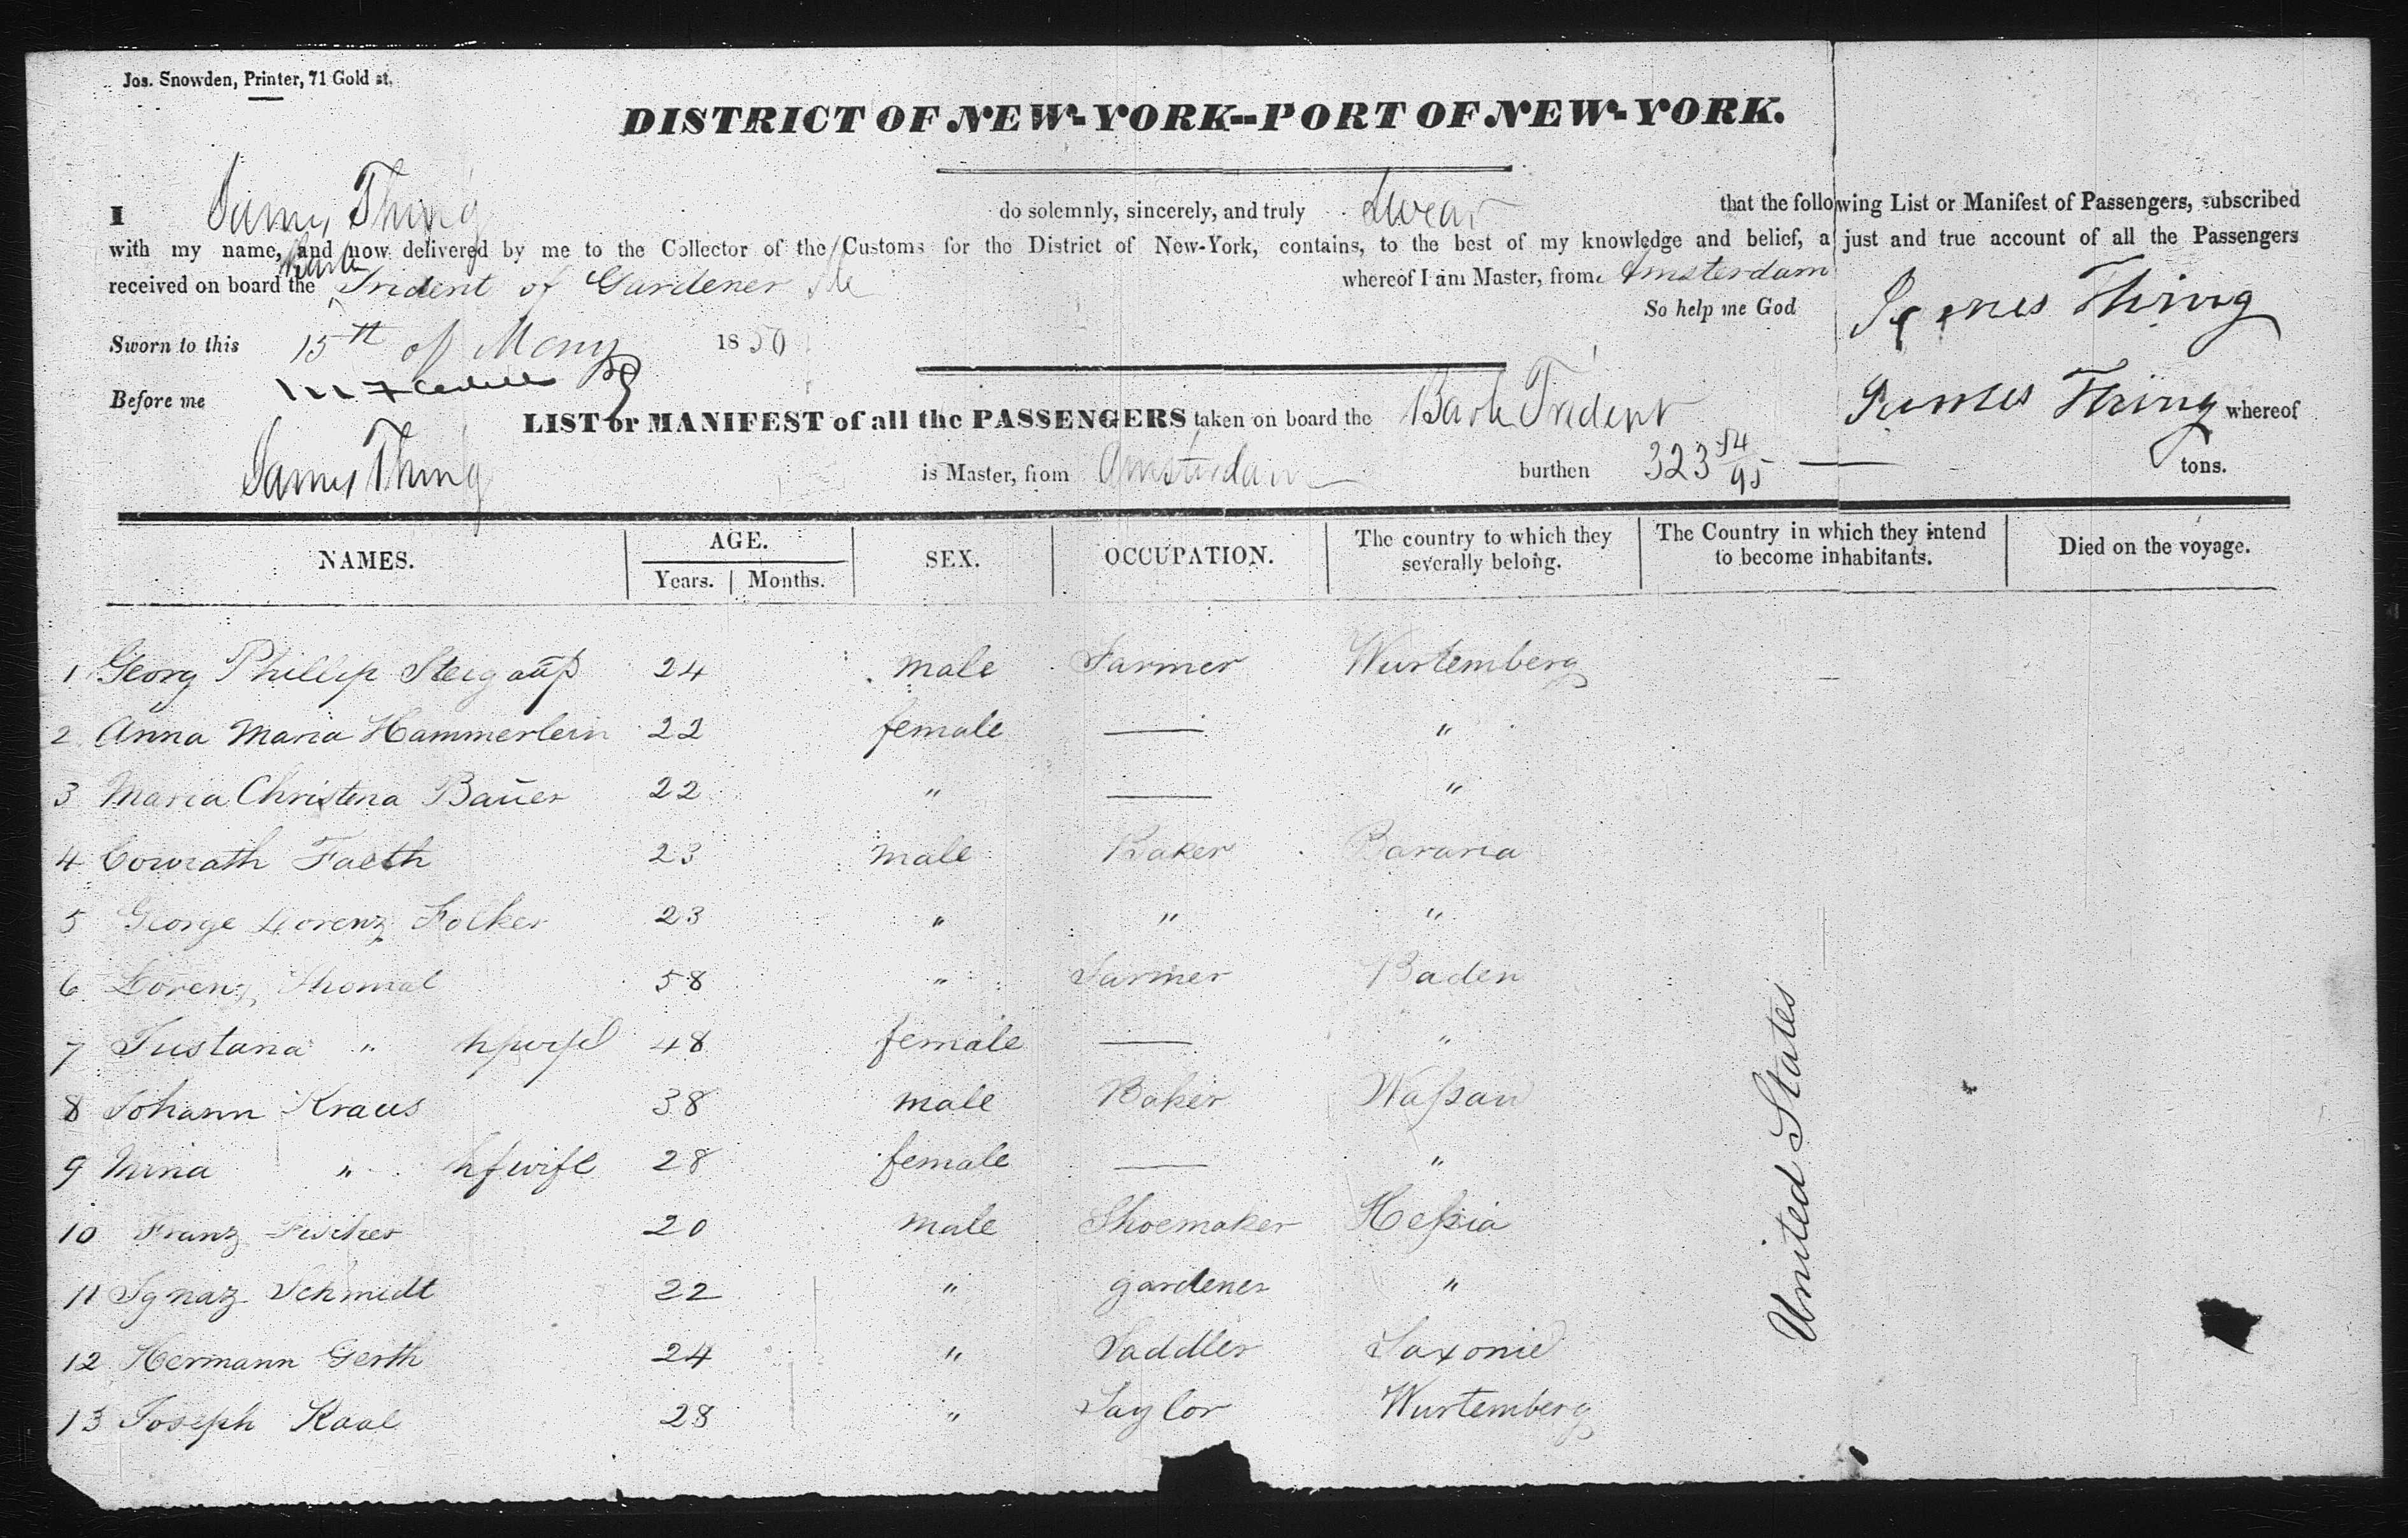 Jos. Snowden, Printer, 71 Gold st.
DISTRICT OF NEW-YORK--PORT OF NEW-YORK.
I James Thing do solemnly, sincerely, and truly swear that the following List or Manifest of Passengers, subscribed
with my name, and now delivered by me to the Collector of the Customs for the District of New-York, contains, to the best of my knowledge and belief, a just and true account of all the Passengers
received on board the Bark Trident of Gardener Me whereof I am Master, from Amsterdam
So help me God James Thing
Sworn to this 15th of May 1850
Before me
LIST or MANIFEST of all the PASSENGERS taken on board the Bark Trident James Thing whereof
James Thing is Master, from Amsterdam burthen 323 54/95 tons.
NAMES. AGE. Years. Months. SEX. OCCUPATION. The country to which they severally belong. The Country in which they intend to become inhabitants. Died on the voyage.
1 Georg Phillip Steigauf 24 male Farmer Wurtemberg
2 Anna Maria Hammerlein 22 female — "
3 Maria Christena Bauer 22 " — "
4 Conrath Faeth 23 male Baker Bavaria
5 George Lorenz Folker 23 " " "
6 Lorenz Thomal 58 " Farmer Baden
7 Justana " 48 female — "
8 Johann Kraus 38 male Baker Naßau
9 Mina " hfwife 28 female — "
10 Franz Fischer 20 male Shoemaker Heßia
11 Ignaz Schmidt 22 " gardener "
12 Hermann Gerth 24 " Saddler Saxonie
13 Joseph Raal 28 " Taylor Wurtemberg
United States